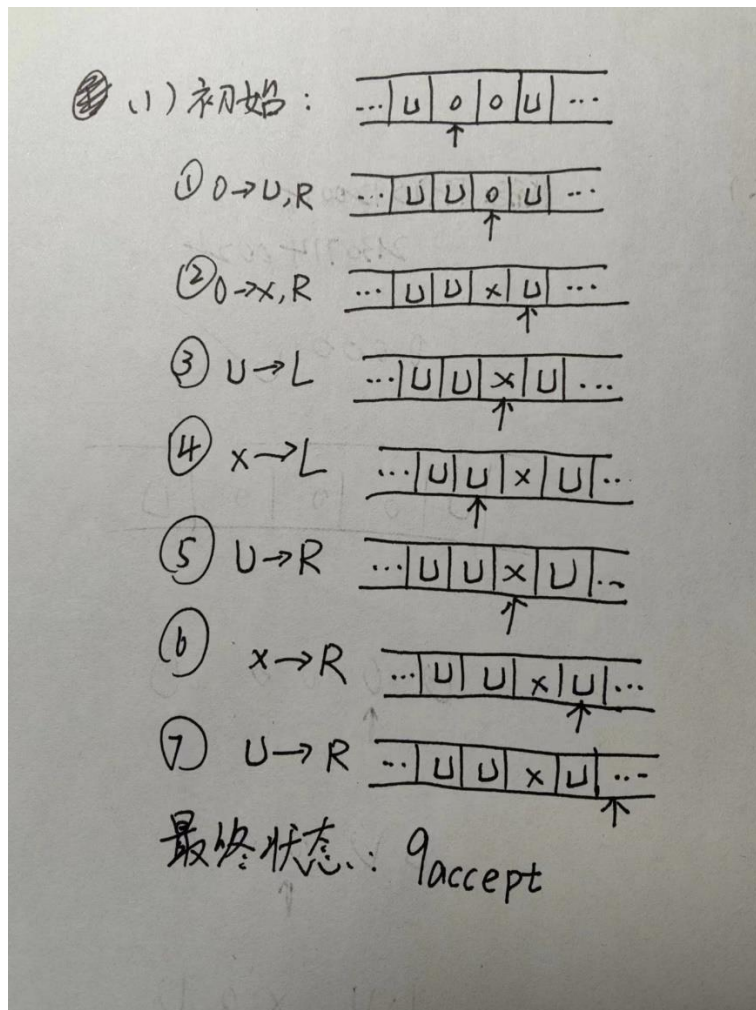 (1) 初始: ... U 0 0 U ...
① 0→U,R ... U U 0 U ...
② 0→x,R ... U U x U ...
③ U→L ... U U x U ...
④ x→L ... U U x U ..
⑤ U→R ... U U x U ...
⑥ x→R ... U U x U ...
⑦ U→R ... U U x U ...
最终状态: qaccept